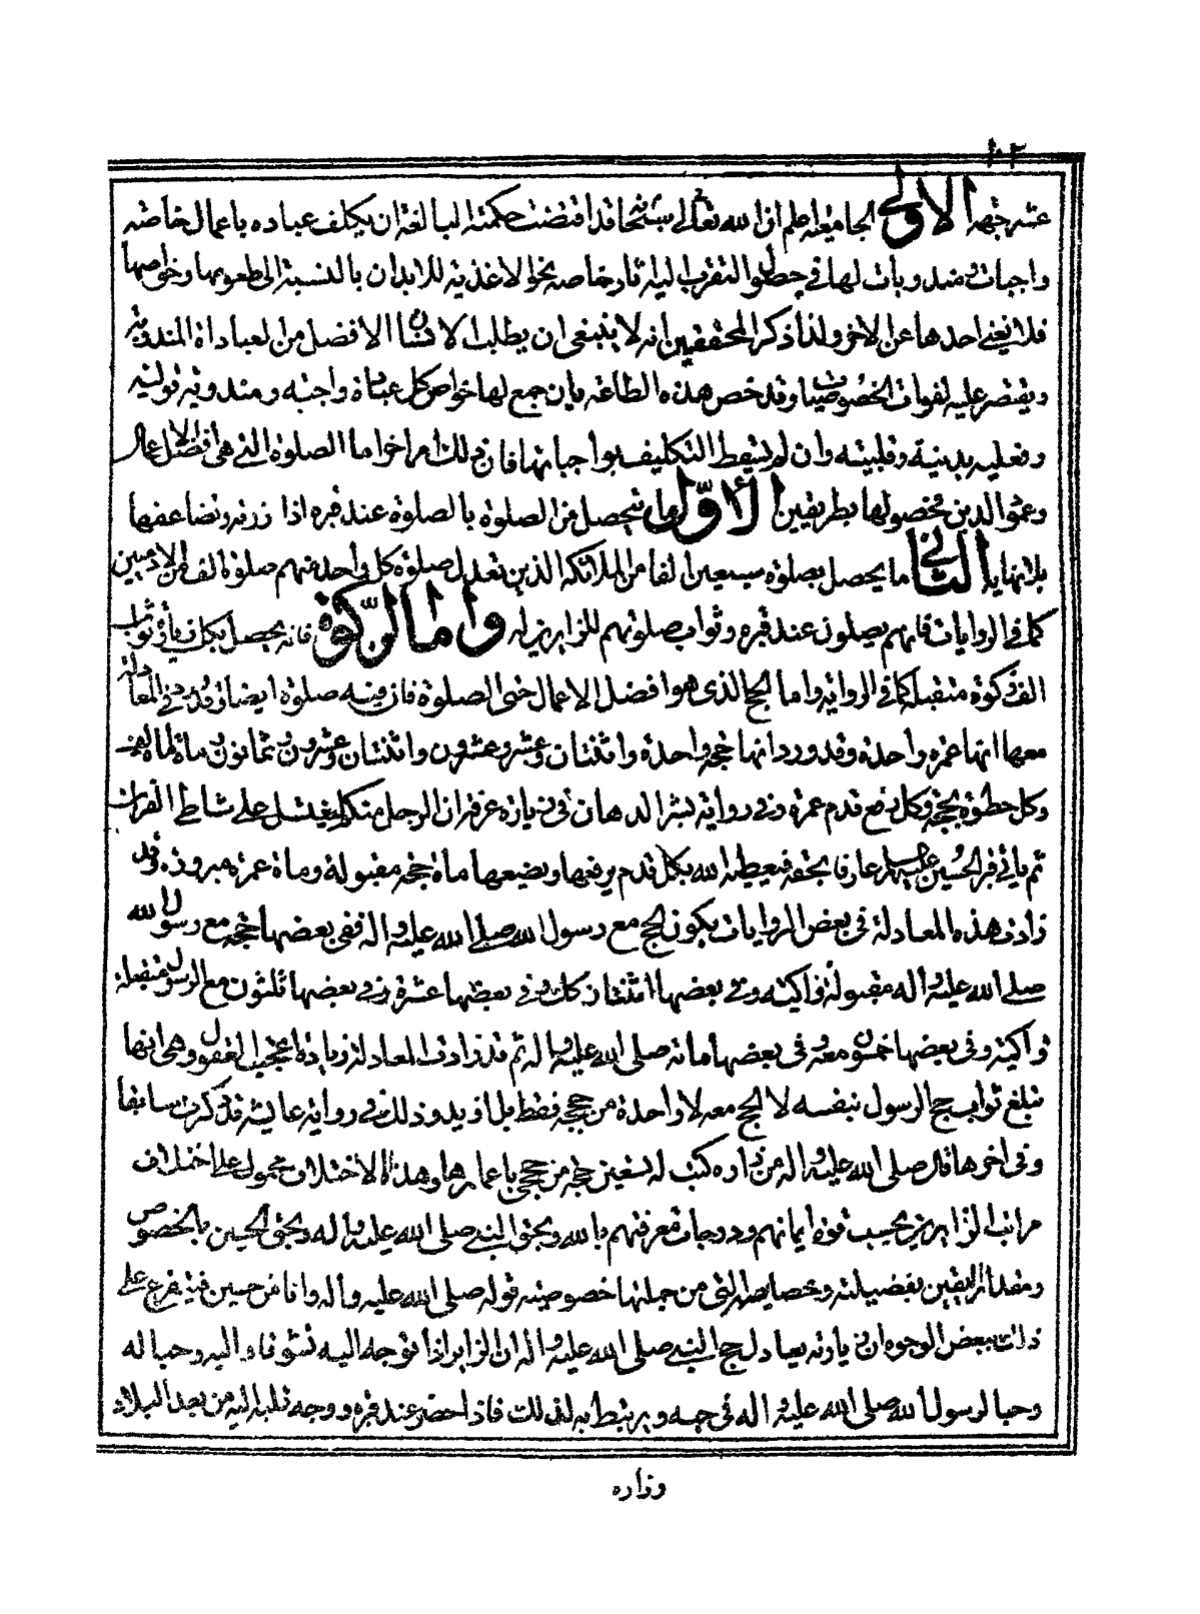 ١٠٢
عشر جهة الاولى الجامعية اعلم ان الله تعالى سبحانه قد اقتضت حكمته البالغة ان يكلف عباده باعمال خاصة
واجبات ومندوبات لها في حصول التقرب اليه اثار خاصة نحو الاغذية للابدان بالنسبة الى طعومها وخواصها
فلا يغنى احدها عن الاخر ولذا ذكر المحققين انه لا ينبغى ان يطلب الانسان الافضل من العبادات المندوبة
ويقتصر عليه لفوات الخصوصيات وقد خص هذه الطاعة بان جمع لها خواص كل عبادة واجبة ومندوبة قولية
وفعلية بدنية وقلبية وان لم يسقط التكليف بواجباتها فان ذلك امر اخر اما الصلوة التي هي افضل الاعمال
وعمود الدين فحصولها بطريقين الاول ما يتحصل من الصلوة بالصلوة عند قبره اذا زرته وتضاعفها
بلا نهاية الثاني ما يحصل بصلوة سبعين الفا من الملائكة الذين تعدل صلوة كل واحد منهم صلوة الف من الادميين
كما في الروايات فانهم يصلون عند قبره وثواب صلوتهم للزايرين له واما الزكوة فانه يحصل بكل زيارة ثواب
الف زكوة متقبلة كما في الرواية واما الحج الذي هو افضل الاعمال حتى الصلوة فان فيه صلوة ايضا وقد ورد في المعادلة
معها انها عمرة واحدة وقد ورد انها حجة واحدة واثنتان وعشر وعشرون واثنتان وعشرون وثمانون ومائة
وكل خطوة بحجة وكل رفع قدم عمرة وفي رواية بشر الدهان في زيارة عرفة ان الرجل منكم ليغتسل على شاطئ الفرات
ثم ياتي قبر الحسين عليه السلام عارفا بحقه فيعطيه الله بكل قدم يرفعها ويضعها مأة حجة مقبولة ومأة عمرة مبرورة وقد
زادت هذه المعادلة في بعض الروايات بكون الحج مع رسول الله صلى الله عليه واله ففي بعضها حجة مع رسول الله
صلى الله عليه واله مقبولة زاكية وفي بعضها اثنتان كك وفي بعضها عشرة وفي بعضها ثلثون مع الرسول متقبلة
زاكية وفي بعضها خمسون معه وفي بعضها مأة معه صلى الله عليه واله ثم قد زادت المعادلة زيادة اعجب العقول وهي انها
تبلغ ثواب حج الرسول بنفسه لا الحج معه لا واحدة من حججه فقط بل ازيد وذلك في رواية عايشة قد ذكرت سابقا
وفي اخرها قال صلى الله عليه واله من زاره كتب له تسعين حجة من حججي باعمارها وهذا الاختلاف محمول على اختلاف
مراتب الزايرين بحسب قوة ايمانهم ودرجات معرفتهم بالله وبحق النبي صلى الله عليه واله وبحق الحسين بالخصوص
ومقدار اليقين بفضيلته وخصايصه التي من جملتها خصوصية قوله صلى الله عليه واله وانا من حسين فيتفرع على
ذلك ببعض الوجوه ان زيارته يعادل حج النبي صلى الله عليه واله ان الزاير اذا توجه اليه تشوقا اليه وحبا له
وحبا لرسول الله صلى الله عليه واله في حبه ويرتبط به لذلك فاذا حضر عند قبره ووجه قلبه اليه من بعد البلاد
وزاره